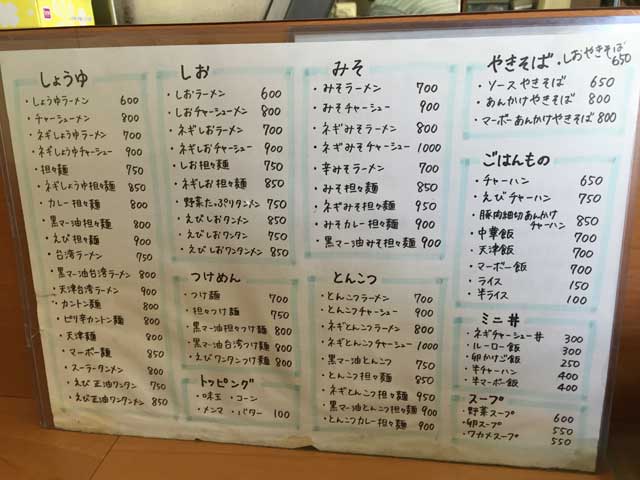 しょうゆ
・しょうゆラーメン 600
・チャーシューメン 800
・ネギしょうゆラーメン 700
・ネギしょうゆチャーシュー 900
・担々麺 750
・ネギしょうゆ担々麺 850
・カレー担々麺 800
・黒マー油担々麺 900
・えび担々麺 900
・台湾ラーメン 750
・黒マー油台湾ラーメン 800
・天津台湾ラーメン 900
・カントン麺 800
・ピリ辛カントン麺 800
・天津麺 800
・マーボー麺 850
・スーラータンメン 850
・えび正油ワンタン 750
・えび正油ワンタンメン 850
しお
・しおラーメン 600
・しおチャーシューメン 800
・ネギしおラーメン 700
・ネギしおチャーシュー 900
・しお担々麺 750
・ネギしお担々麺 850
・野菜たっぷりタンメン 750
・えびしおワンタン 750
・えびしおワンタンメン 850
つけめん
・つけ麺 700
・担々つけ麺 750
・黒マー油担々つけ麺 800
・黒マー油台湾つけ麺 800
・えびワンタンつけ麺 800
トッピング
・味玉 ・コーン
・メンマ ・バター 100
みそ
・みそラーメン 700
・みそチャーシュー 900
・ネギみそラーメン 800
・ネギみそチャーシュー 1000
・辛みそラーメン 750
・みそ担々麺 850
・ネギみそ担々麺 950
・みそカレー担々麺 900
・黒マー油みそ担々麺 900
とんこつ
・とんこつラーメン 700
・とんこつチャーシュー 900
・ネギとんこつラーメン 800
・ネギとんこつチャーシュー 1000
・黒マー油とんこつ 750
・とんこつ担々麺 850
・ネギとんこつ担々麺 950
・黒マー油とんこつ担々麺 900
・とんこつカレー担々麺 900
やきそば ・しおやきそば 650
・ソースやきそば 650
・あんかけやきそば 800
・マーボーあんかけやきそば 800
ごはんもの
・チャーハン 650
・えびチャーハン 750
・豚肉細切あんかけ
チャーハン 850
・中華飯 700
・天津飯 700
・マーボー飯 700
・ライス 150
・半ライス 100
ミニ丼
・ネギチャーシュー丼 300
・ルーロー飯 300
・卵かけご飯 250
・半チャーハン 400
・半マーボー飯 400
スープ
・野菜スープ 600
・卵スープ 550
・ワカメスープ 550